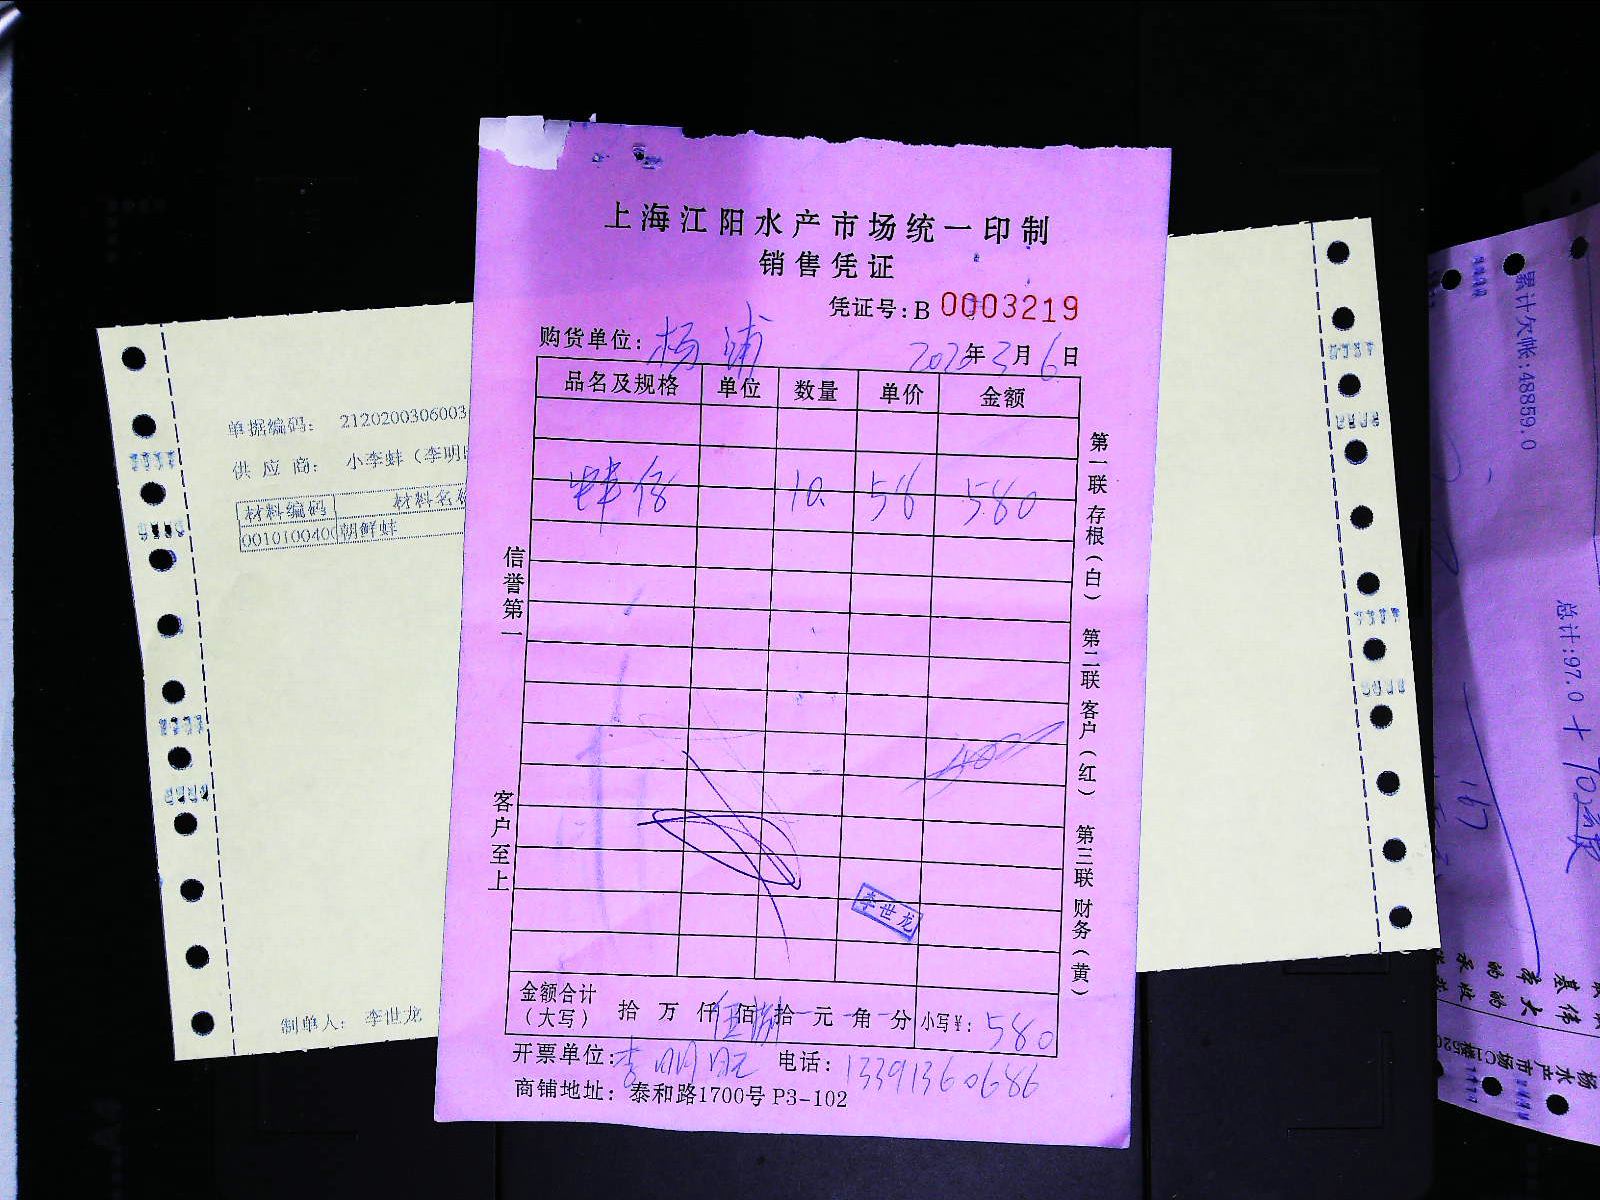 上海江阳水产市场统一印制
销售凭证
凭证号:B 0003219
购货单位: 杨浦 2020年3月6日
品名及规格 单位 数量 单价 金额
10. 58 580
信誉第一
客户至上
第一联 存根(白) 第二联 客户(红) 第三联 财务(黄)
李世龙
金额合计(大写) 拾 万 仟伍佰捌拾元 角 分 小写¥: 580
开票单位:李明旺 电话: 13391360686
商铺地址: 泰和路1700号 P3-102
单据编码: 2120200306003
供 应 商: 小李蚌(李明
材料编码 材料名
0010100400 朝鲜蚌
制单人: 李世龙
累计欠帐:48859.0
总计:97.0 + 70
167